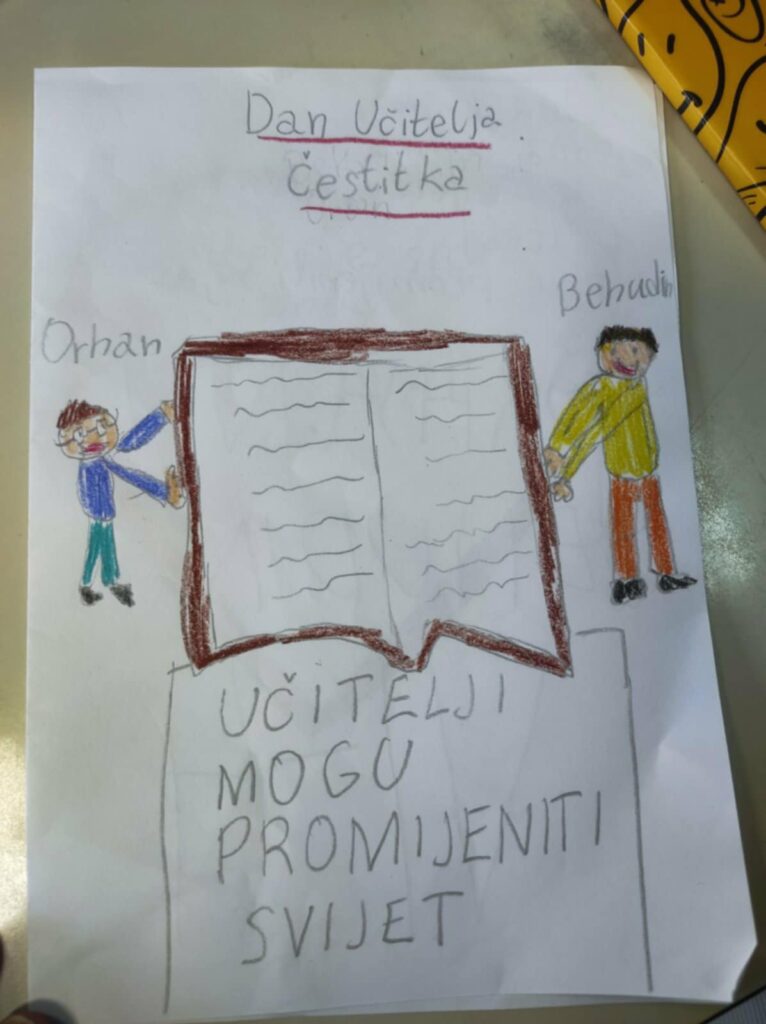 Dan Učitelja
Čestitka
Orhan
Behudin
UČITELJI
MOGU
PROMIJENITI
SVIJET